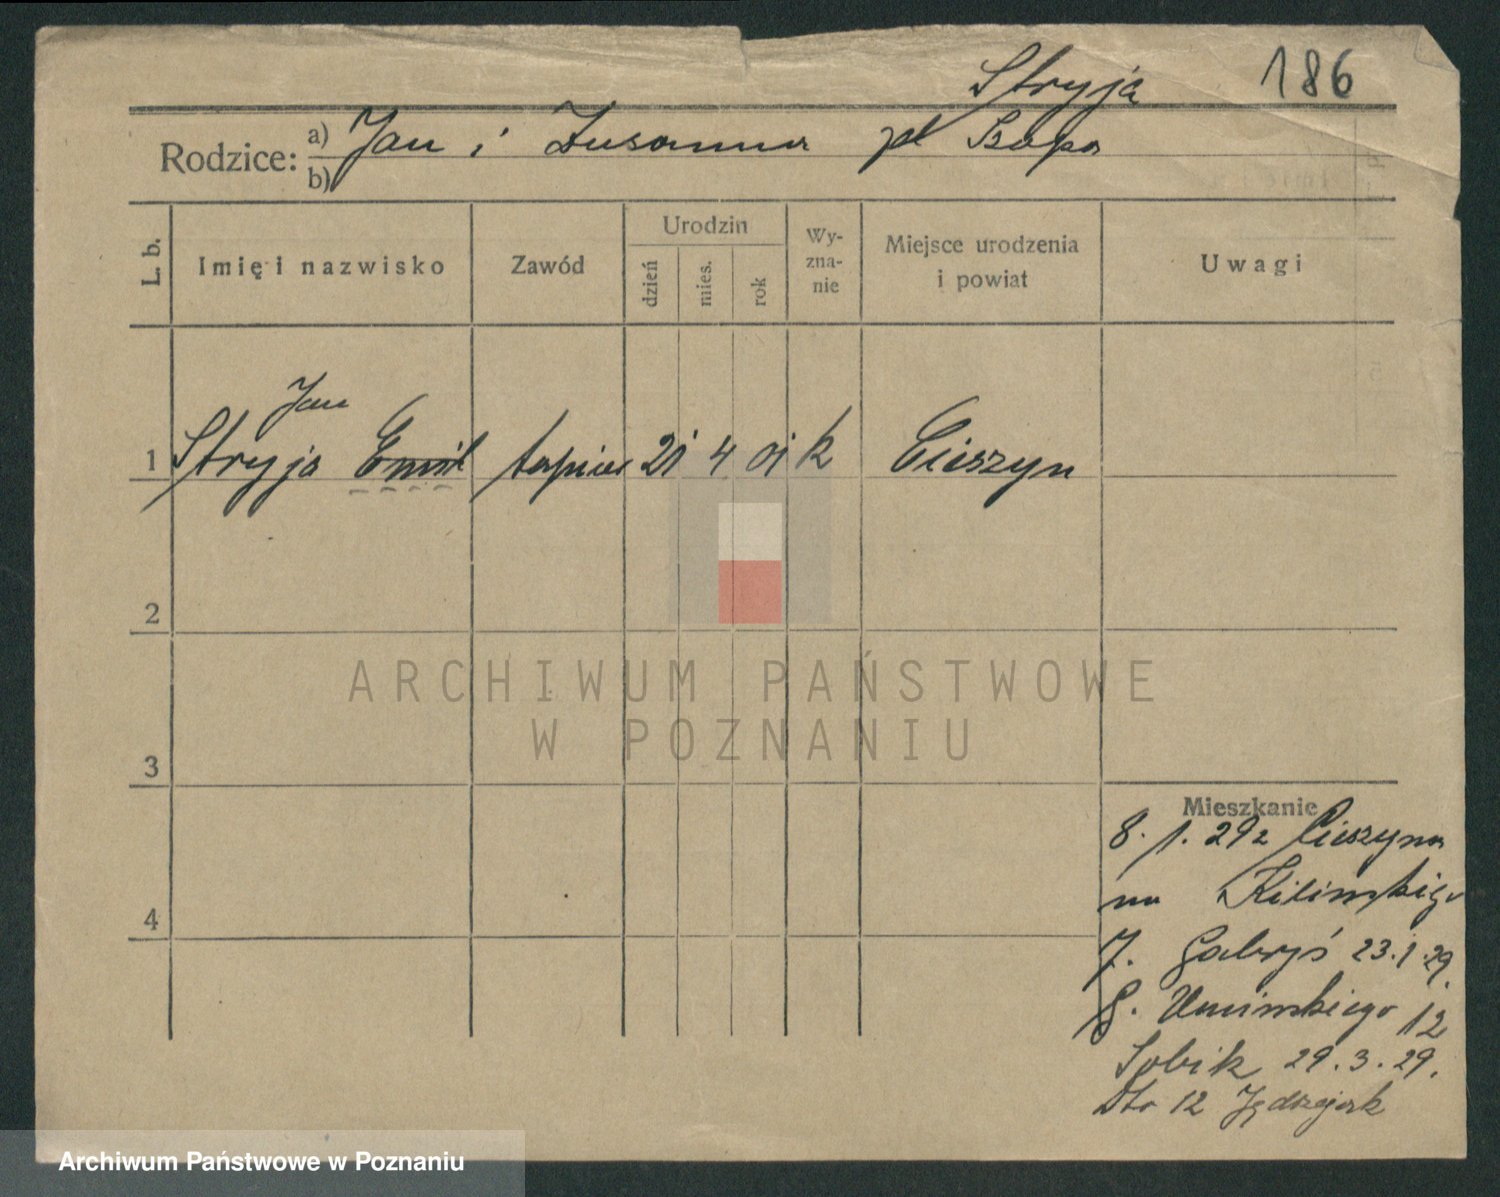 Stryja 186
Rodzice: a) Jan i Zusanna zd Szupa
b)
L. b. Imię i nazwisko Zawód Urodzin dzień mies. rok Wy-zna-nie Miejsce urodzenia i powiat Uwagi
Jan
1 Stryja Emil tapicer 21 4 01 k Cieszyn
2
ARCHIWUM PAŃSTWOWE
W POZNANIU
3
Mieszkanie
8. 1. 29 z Cieszyna
na Kilińskiego
7. Gabryś 23.1.29.
G. Umińskiego 12
4
Sobik 29.3.29.
Dto 12 Jędrzejak
Archiwum Państwowe w Poznaniu